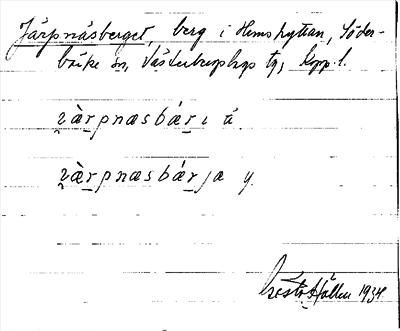 Järpnäsberget, berg i Hemshyttan, Söder-
bärke sn, Västerbergslags tg, Kopp. l.
ʒä̀rpnæsbárı ä.
ʒä̀rpnæsbárja y.
Gösta Hallin 1934